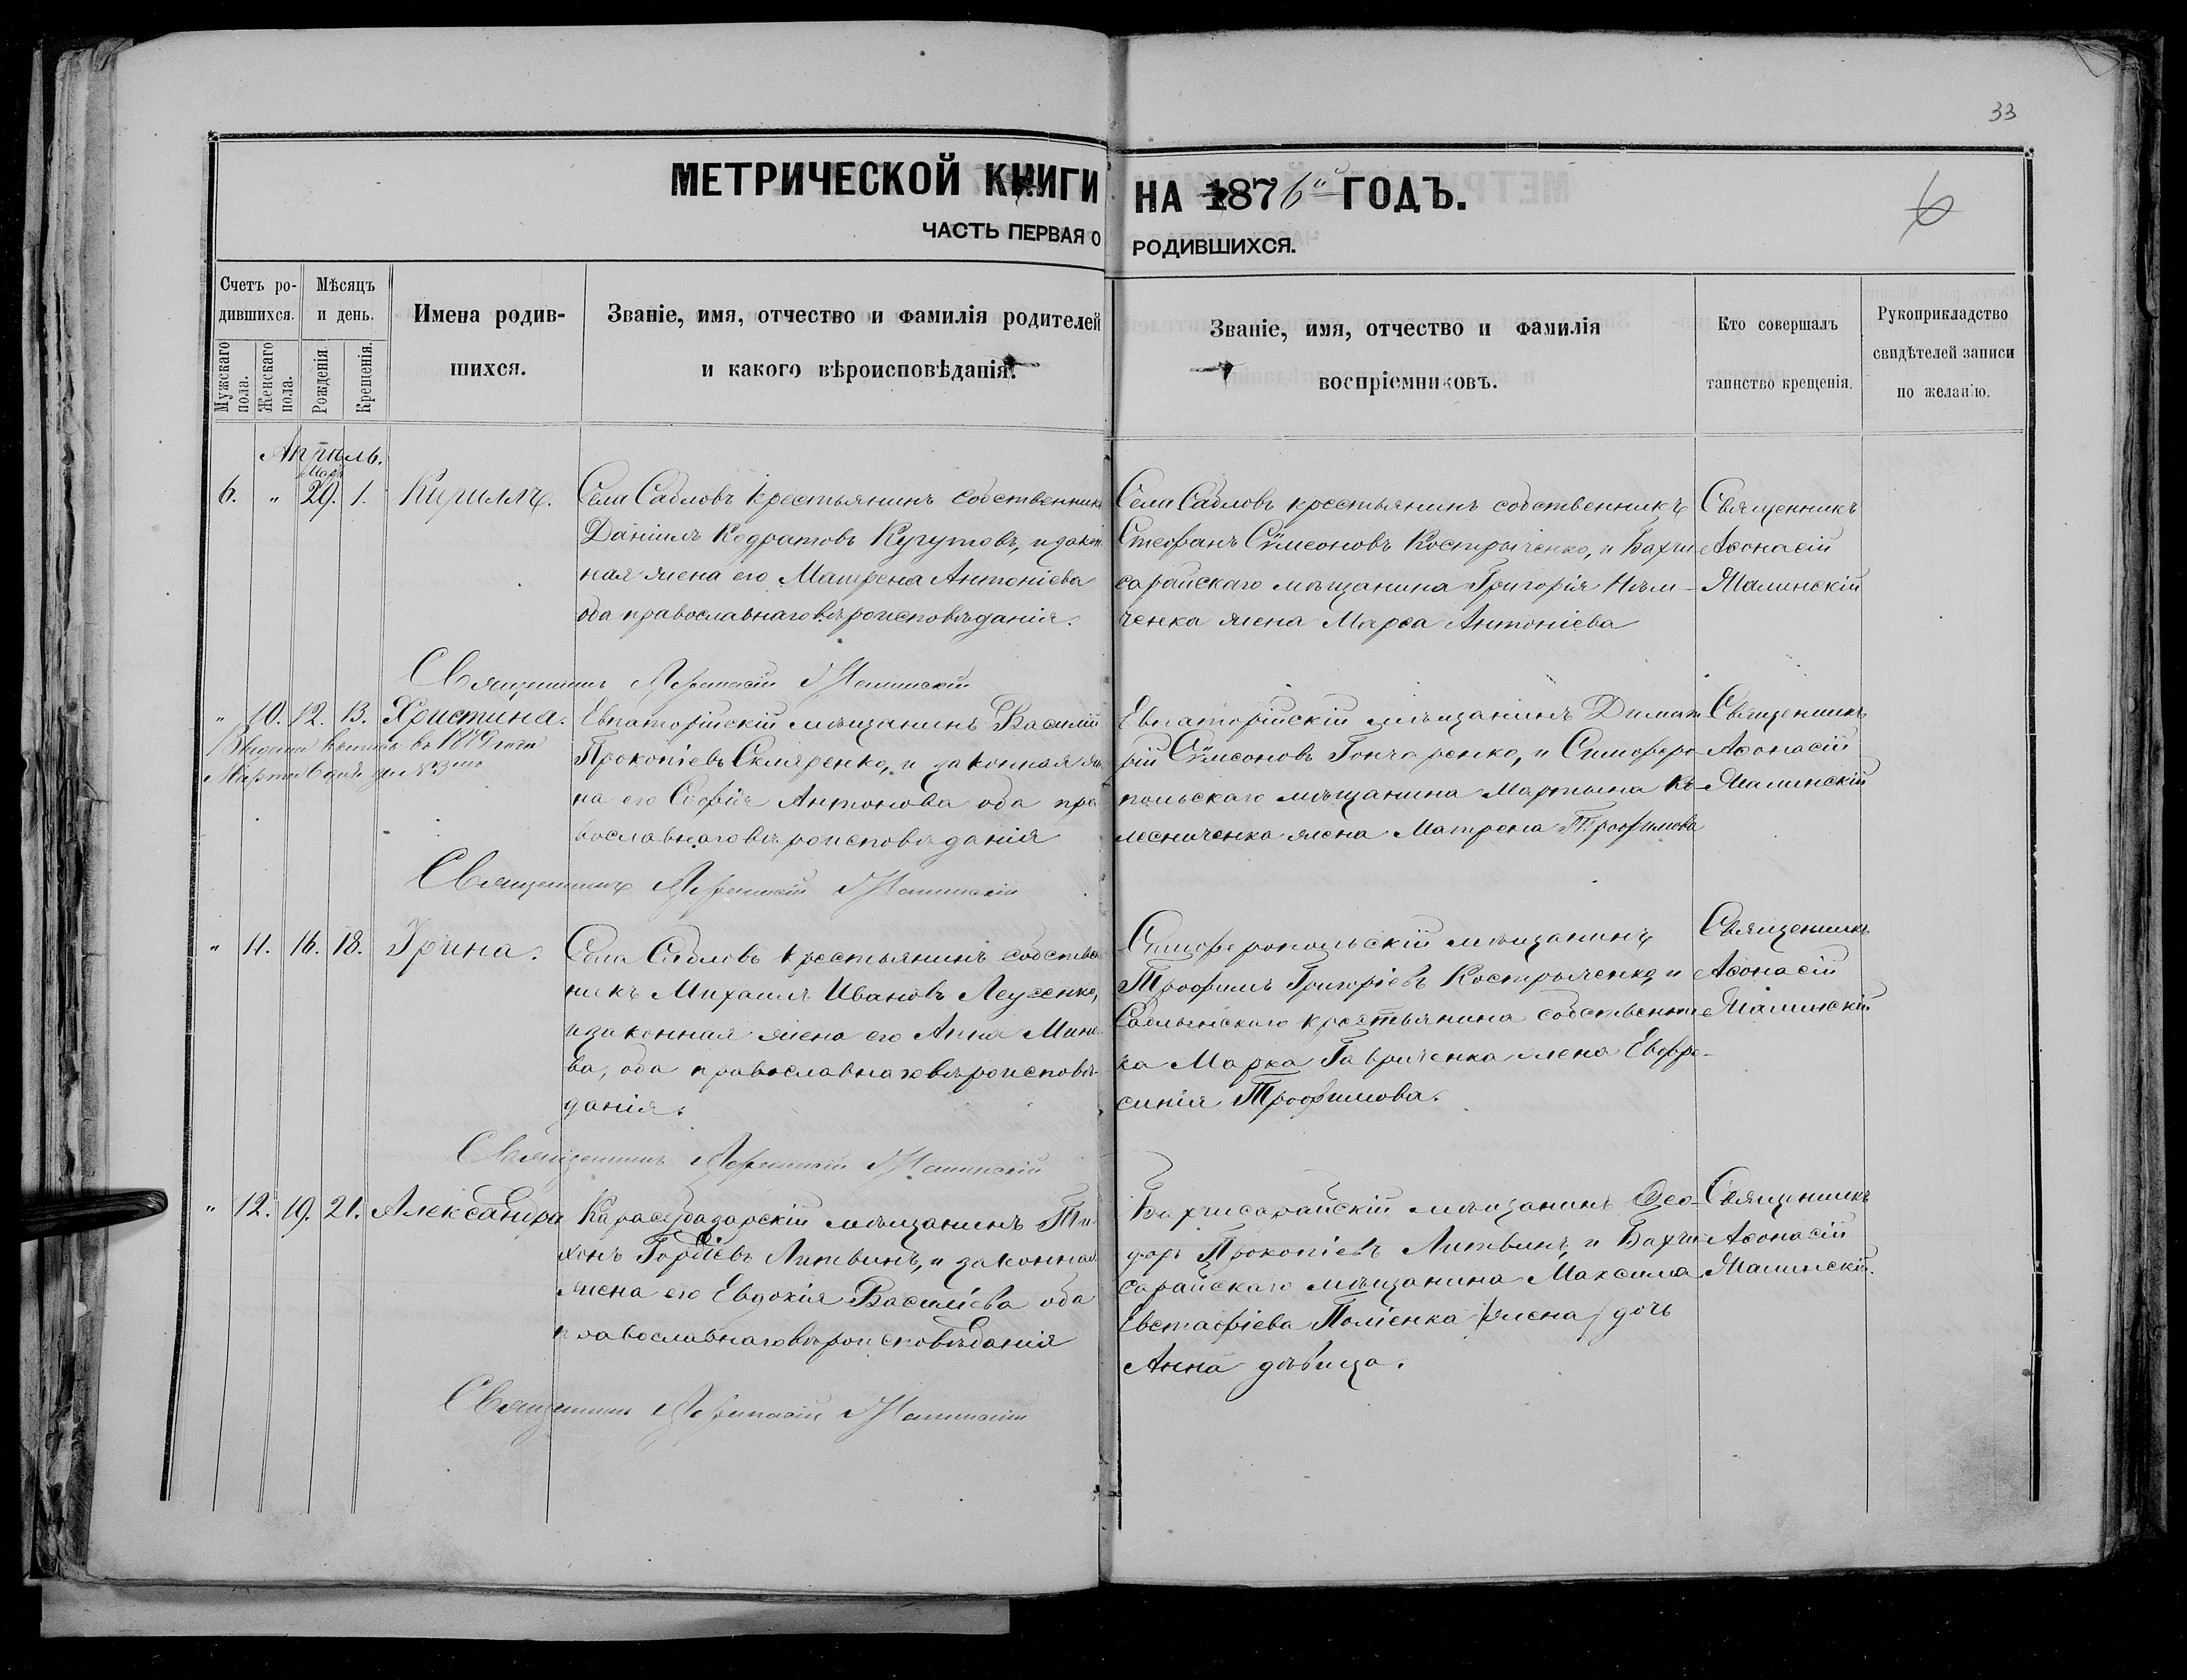 33
МЕТРИЧЕСКОЙ КНИГИ НА 1876й ГОДЪ.
6
ЧАСТЬ ПЕРВАЯ О РОДИВШИХСЯ.
Счетъ родившихся.
Мужскаго пола.
Женскаго пола.
Мѣсяцъ и день.
Рожденія.
Крещенія.
Имена родив-
шихся.
Званіе, имя, отчество и фамилія родителей
и какого вѣроисповѣданія.
Званіе, имя, отчество и фамилія
воспріемниковъ.
Кто совершалъ
таинство крещенія.
Рукоприкладство
свидѣтелей записи
по желанію.
Апрѣль.
Мар.
6. " 29. 1. Кириллъ.
Села Сабловъ крестьянинъ собственникъ
Даніилъ Кодратовъ Кугутовъ, и закон
ная жена его Матрена Антоніева
оба православнаго вѣроисповѣданія.
Села Сабловъ крестьянинъ собственникъ
Стефанъ Сѵмеоновъ Костыченко, и Бахчи
сарайскаго мѣщанина Григорія Нѣм-
ченка жена Марѳа Антоніева
Священникъ
Аѳонасій
Малинскій
Священникъ Аѳонасій Малинскій
" 10. 12. 13. Христина.
Выдана выпись въ 1879 года
Марта 6 дня за №
Евпаторійскій мѣщанинъ Василій
Прокопіевъ Скляренко, и законная же
на его Софія Антонова оба пра
вославнаго вѣроисповѣданія
Евпаторійскій мѣщанинъ Димит
рій Сѵмеоновъ Гончаренко, и Симферо
польскаго мѣщанина Мартына Ко
лесниченка жена Матрена Трофимова
Священникъ
Аѳонасій
Малинскій
Священникъ Аѳонасій Малинскій
" 11. 16. 18. Ирина.
Села Сабловъ крестьянинъ собствен
никъ Михаилъ Ивановъ Леусенко,
и законная жена его Анна Мине
ва, оба православнаго вѣроисповѣ-
данія.
Симферопольскій мѣщанинъ
Трофимъ Григоріевъ Костыченко, и
Саблынскаго крестьянина собственни
ка Марка Гавриченка жена Евфро-
синія Трофимова.
Священникъ
Аѳонасій
Малинскій
Священникъ Аѳонасій Малинскій
" 12. 19. 21. Александра
Карасубазарскій мѣщанинъ Ти
хонъ Гордіевъ Литвинъ, и законная
жена его Евдокія Василіева оба
православнаго вѣроисповѣданія
Бахчисарайскій мѣщанинъ Ѳео-
доръ Прокопіевъ Литвинъ, и Бахчи
сарайскаго мѣщанина Максима
Евстафіева Поліенка (жена) дочь
Анна дѣвица.
Священникъ
Аѳонасій
Малинскій.
Священникъ Аѳонасій Малинскій